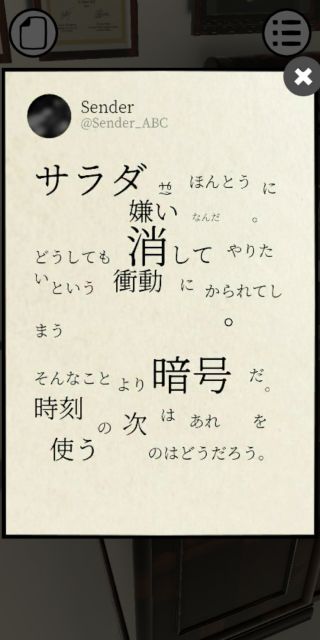 Sender
@Sender_ABC
サラダ せ ほんとう に
嫌い なんだ 。
どうしても 消して やりた
いという 衝動 に かられてし
まう 。
そんなこと より 暗号 だ。
時刻 の 次 は あれ を
使う のはどうだろう。